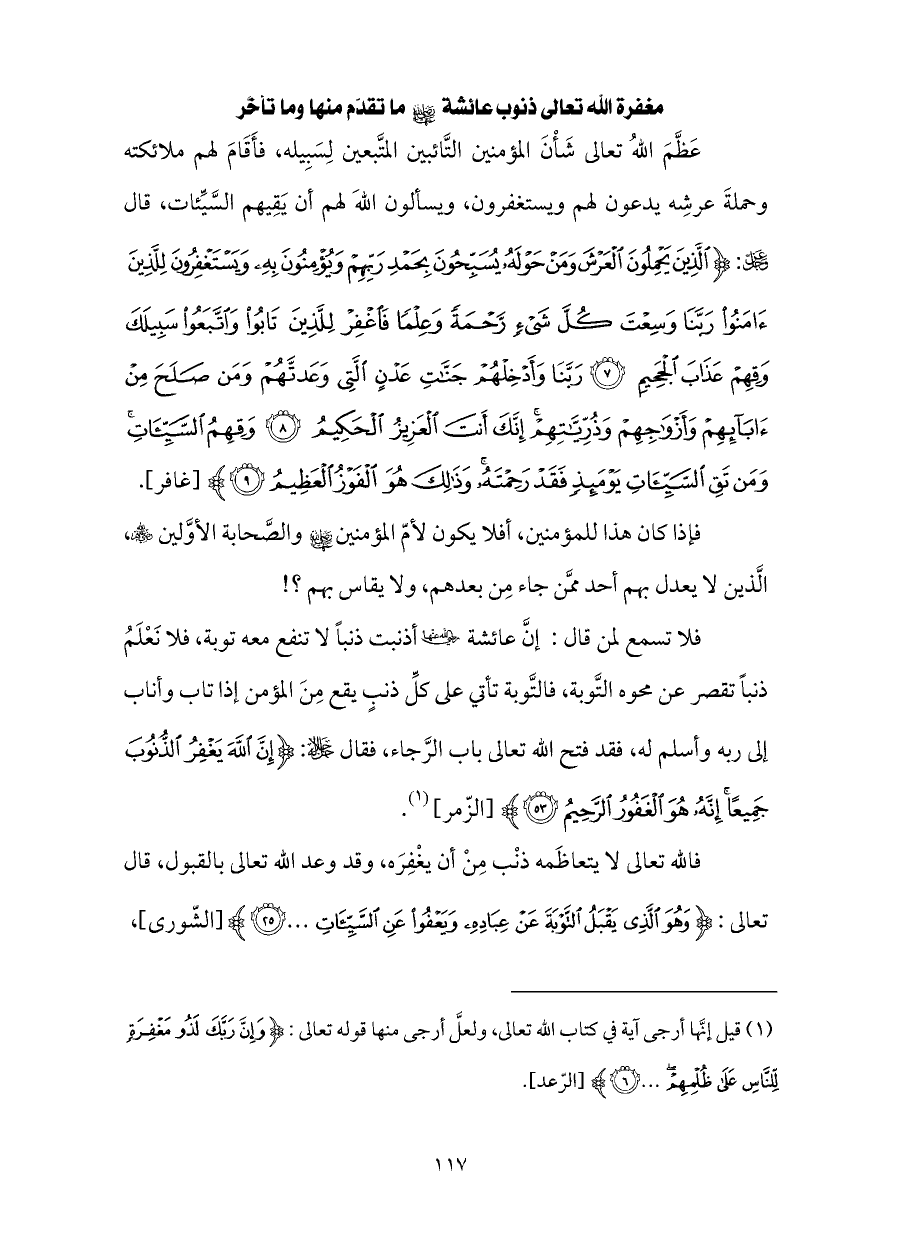 مغفرة الله تعالى ذنوب عائشة رضي الله عنها ما تقدَّم منها وما تأخّر
عَظَّمَ اللهُ تعالى شَأْنَ المؤمنين التَّائبين المتَّبعين لِسَبِيله، فأَقَامَ لهم ملائكته
وحملةَ عرشِه يدعون لهم ويستغفرون، ويسألون اللهَ لهم أن يَقِيهم السَّيِّئات، قال
عز وجل: ﴿ٱلَّذِينَ يَحۡمِلُونَ ٱلۡعَرۡشَ وَمَنۡ حَوۡلَهُۥ يُسَبِّحُونَ بِحَمۡدِ رَبِّهِمۡ وَيُؤۡمِنُونَ بِهِۦ وَيَسۡتَغۡفِرُونَ لِلَّذِينَ
ءَامَنُواْ رَبَّنَا وَسِعۡتَ كُلَّ شَيۡءٖ رَّحۡمَةٗ وَعِلۡمٗا فَٱغۡفِرۡ لِلَّذِينَ تَابُواْ وَٱتَّبَعُواْ سَبِيلَكَ
وَقِهِمۡ عَذَابَ ٱلۡجَحِيمِ ٧ رَبَّنَا وَأَدۡخِلۡهُمۡ جَنَّٰتِ عَدۡنٍ ٱلَّتِي وَعَدتَّهُمۡ وَمَن صَلَحَ مِنۡ
ءَابَآئِهِمۡ وَأَزۡوَٰجِهِمۡ وَذُرِّيَّٰتِهِمۡۚ إِنَّكَ أَنتَ ٱلۡعَزِيزُ ٱلۡحَكِيمُ ٨ وَقِهِمُ ٱلسَّيِّـَٔاتِۚ
وَمَن تَقِ ٱلسَّيِّـَٔاتِ يَوۡمَئِذٖ فَقَدۡ رَحِمۡتَهُۥۚ وَذَٰلِكَ هُوَ ٱلۡفَوۡزُ ٱلۡعَظِيمُ ٩﴾ [غافر].
فإذا كان هذا للمؤمنين، أفلا يكون لأمّ المؤمنين رضي الله عنها والصَّحابة الأوَّلين رضي الله عنهم،
الَّذين لا يعدل بهم أحد ممَّن جاء مِن بعدهم، ولا يقاس بهم ؟!
فلا تسمع لمن قال : إنَّ عائشة رضي الله عنها أذنبت ذنباً لا تنفع معه توبة، فلا نَعْلَمُ
ذنباً تقصر عن محوه التَّوبة، فالتَّوبة تأتي على كلِّ ذنبٍ يقع مِنَ المؤمن إذا تاب وأناب
إلى ربه وأسلم له، فقد فتح الله تعالى باب الرَّجاء، فقال جل جلاله: ﴿إِنَّ ٱللَّهَ يَغۡفِرُ ٱلذُّنُوبَ
جَمِيعًاۚ إِنَّهُۥ هُوَ ٱلۡغَفُورُ ٱلرَّحِيمُ ٥٣﴾ [الزّمر] (١).
فالله تعالى لا يتعاظَمه ذنْب مِنْ أن يغْفِرَه، وقد وعد الله تعالى بالقبول، قال
تعالى : ﴿وَهُوَ ٱلَّذِي يَقۡبَلُ ٱلتَّوۡبَةَ عَنۡ عِبَادِهِۦ وَيَعۡفُواْ عَنِ ٱلسَّيِّـَٔاتِ ...٢٥﴾ [الشّورى]،
(١) قيل إنَّها أرجى آية في كتاب الله تعالى، ولعلَّ أرجى منها قوله تعالى : ﴿وَإِنَّ رَبَّكَ لَذُو مَغۡفِرَةٖ
لِّلنَّاسِ عَلَىٰ ظُلۡمِهِمۡۖ ...٦﴾ [الرّعد].
١١٧